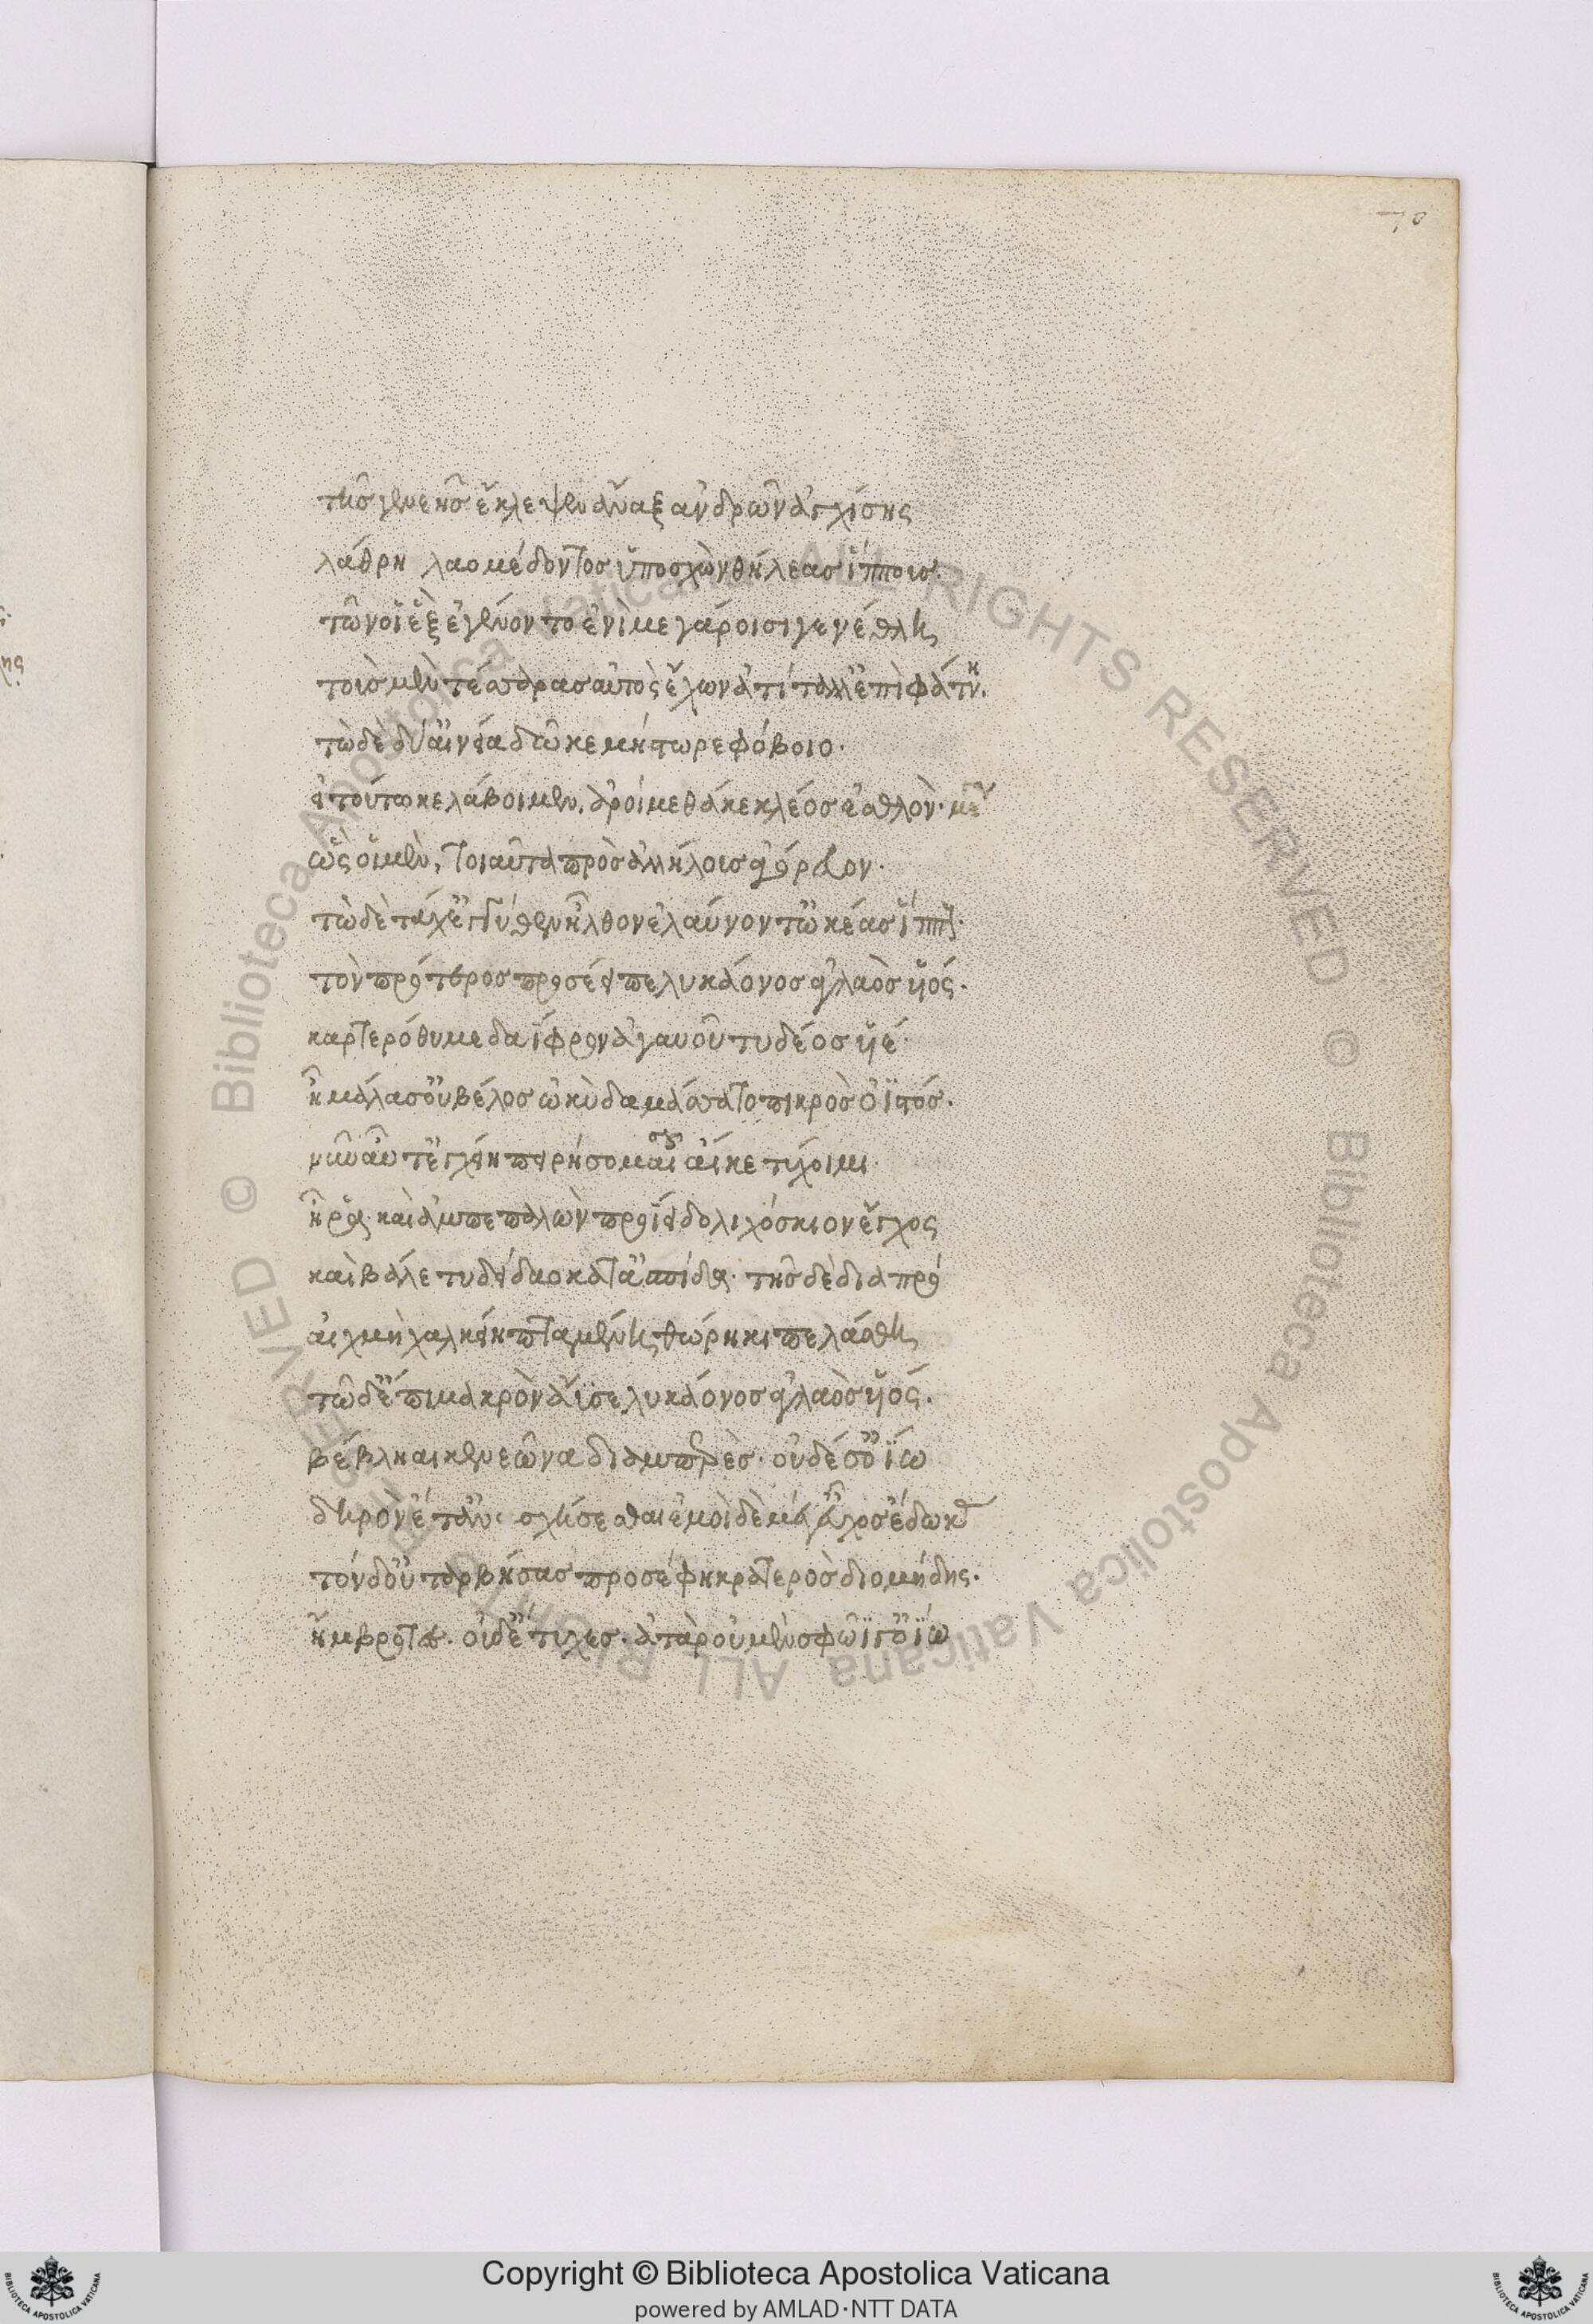 τῆσ γενεῆσ ἔκλεψεν ἄναξ ἀνδρῶν ἀγχίσης
λάθρη λαομέδοντοσ ὑποσχὼν θήλεασ ἵππουσ.
τῶν οἱ ἓξ ἐγένοντο ἐνὶ μεγάροισι γενέθλης
τοὺσ μὲν τέσσαρασ αὐτὸς ἔχων ἀτίταλλ' ἐπὶ φάτνη.
τὼ δὲ δύ' αἰνεία δῶκε μήστωρε φόβοιο·
εἰ τούτω κε λάβοιμεν, ἀροίμεθά κε κλέοσ ἐσθλὸν·
ὣς οἱ μὲν, τοιαῦτα πρὸσ ἀλλήλουσ ἀγόρευον·
τὼ δὲ τάχ' ἐγγύθεν ἦλθον ἐλαύνοντ' ὠκέασ ἵππους·
τὸν πρότεροσ προσέειπε λυκάονοσ ἀγλαὸσ υἱός·
καρτερόθυμε δαΐφρον ἀγαυοῦ τυδέοσ υἱέ·
ἦ μάλα σ' οὐ βέλοσ ὠκὺ δαμάσσατο πικρὸσ ὀϊστός·
νῦν αὖτ' ἐγχείη πειρήσομαι αἴ κε τύχοιμι·
ἦ ῥα· καὶ ἀμπεπαλὼν προΐει δολιχόσκιον ἔγχος
καὶ βάλε τυδείδαο κατ' ἀσπίδα· τῆσ δὲ διαπρό
αἰχμὴ χαλκείη πταμένη θώρηκι πελάσθη
τῶ δ' ἐπὶ μακρὸν ἄϋσε λυκάονοσ ἀγλαὸσ υἱός·
βέβληαι κενεῶνα διαμπερὲσ· οὐδέ σ' ὀΐω
δηρὸν ἔτ' ἀνσχήσεσθαι ἐμοὶ δὲ μέγ' εὖχοσ ἔδωκας
τὸν δ' οὐ ταρβήσασ προσέφη κρατεροσ διομήδης·
ἤμβροτεσ· οὐδ' ἔτυχεσ· ἀτὰρ οὐ μὲν σφῶϊ γ' ὀΐω
Copyright © Biblioteca Apostolica Vaticana
powered by AMLAD·NTT DATA